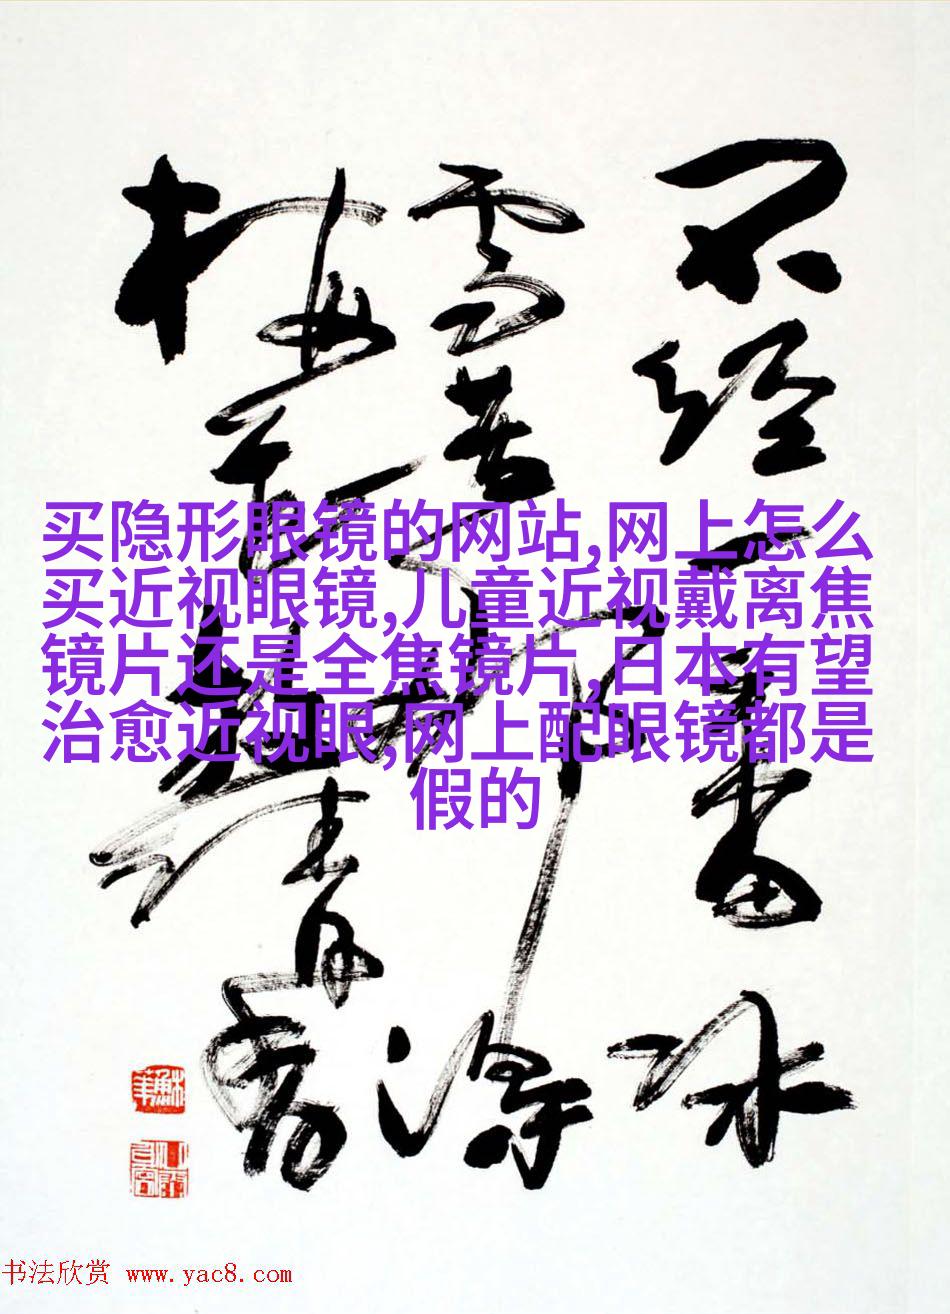 不经一番冰
雪苦那得
梅花清香
买隐形眼镜的网站,网上怎么
买近视眼镜,儿童近视戴离焦
镜片还是全焦镜片,日本有望
治愈近视眼,网上配眼镜都是
假的
书法欣赏 www.yac8.com